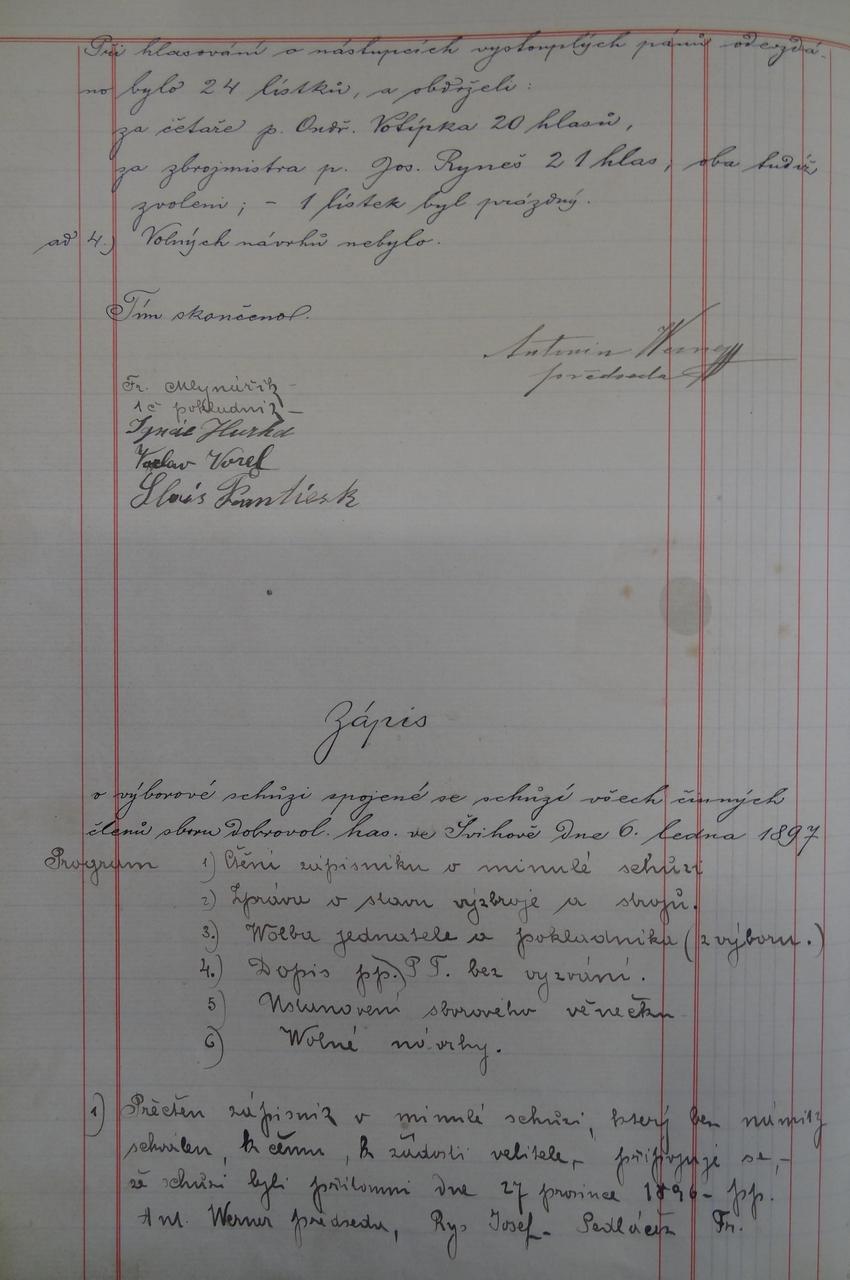 Při hlasování o nástupcích vystouplých pánů odevzdá-
no bylo 24 lístků, a obdrželi:
za četaře p. Ondř. Votípka 20 hlasů,
za zbrojmistra p. Jos. Ryneš 21 hlas; oba tudíž
zvoleni; - 1 lístek byl prázdný.
ad 4.) Volných návrhů nebylo.
Tím skončeno.
Antonin Werner
předseda
Fr. Mlynářík -
pokladník -
Ignác Hurka
Václav Vorel
Frantisek
Zápis
o výborové schůzi spojené se schůzí všech činných
členů sboru dobrovol. has. ve Švihově dne 6. ledna 1897
Program 1) Čtění zápisníku o minulé schůzi
2) Zpráva o stavu výzbroje a strojů.
3.) Wolba jednatele a pokladníka (z výboru.)
4.) Dopis pp.) P T. bez vyzvání.
5) Ustanovení sborového věnečku
6) Wolné návrhy.
1) Přečten zápisník o minulé schůzi, který bez námitk
schválen, k čemu, k žádosti velitele, připojuje se, -
že schůzi byli přítomni dne 27 prosince 1896 - pp.
Ant. Werner předseda, Rys Josef - Sedláček Fr.